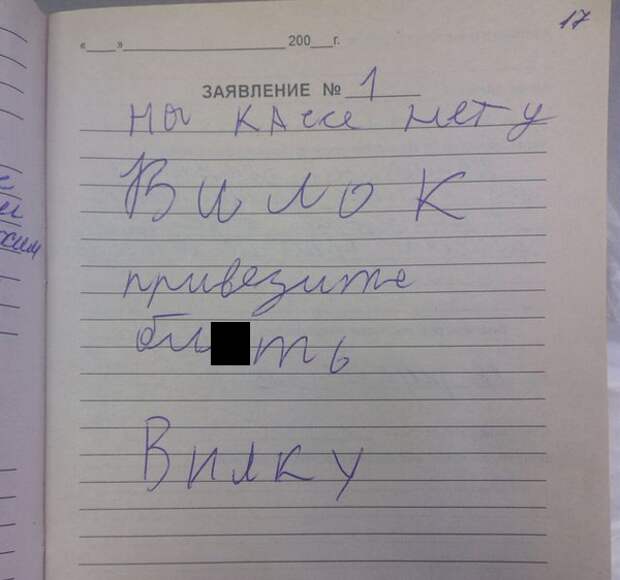 17
«____»____________________ 200___г.
ЗАЯВЛЕНИЕ № 1
на кассе нету
Вилок
привезите
бл■ть
Вилку